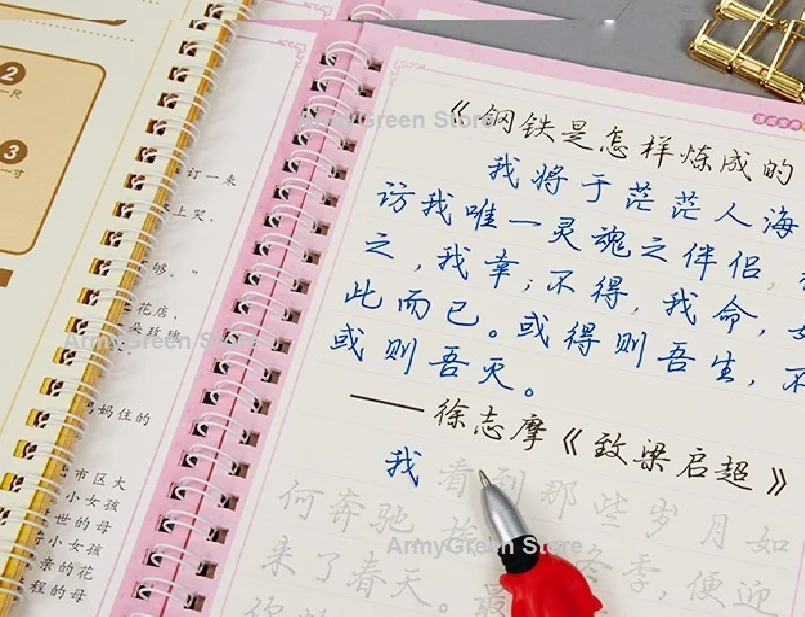 2
一尺
3
一寸
订一束
上哭,
够。”
花店,
朵玫瑰
妈妈住的
市区大
小女孩
世的母
小女孩
亲的花
程的母
ArmyGreen Store
《钢铁是怎样炼成的
我将于茫茫人海
访我唯一灵魂之伴侣,
之,我幸;不得,我命,如
此而已。或得则吾生,不
或则吾灭。
——徐志摩《致梁启超》
我看到那些岁月如
何奔驰
来了春天。最 冬季,便迎
ArmyGreen Store
ArmyGreen Store